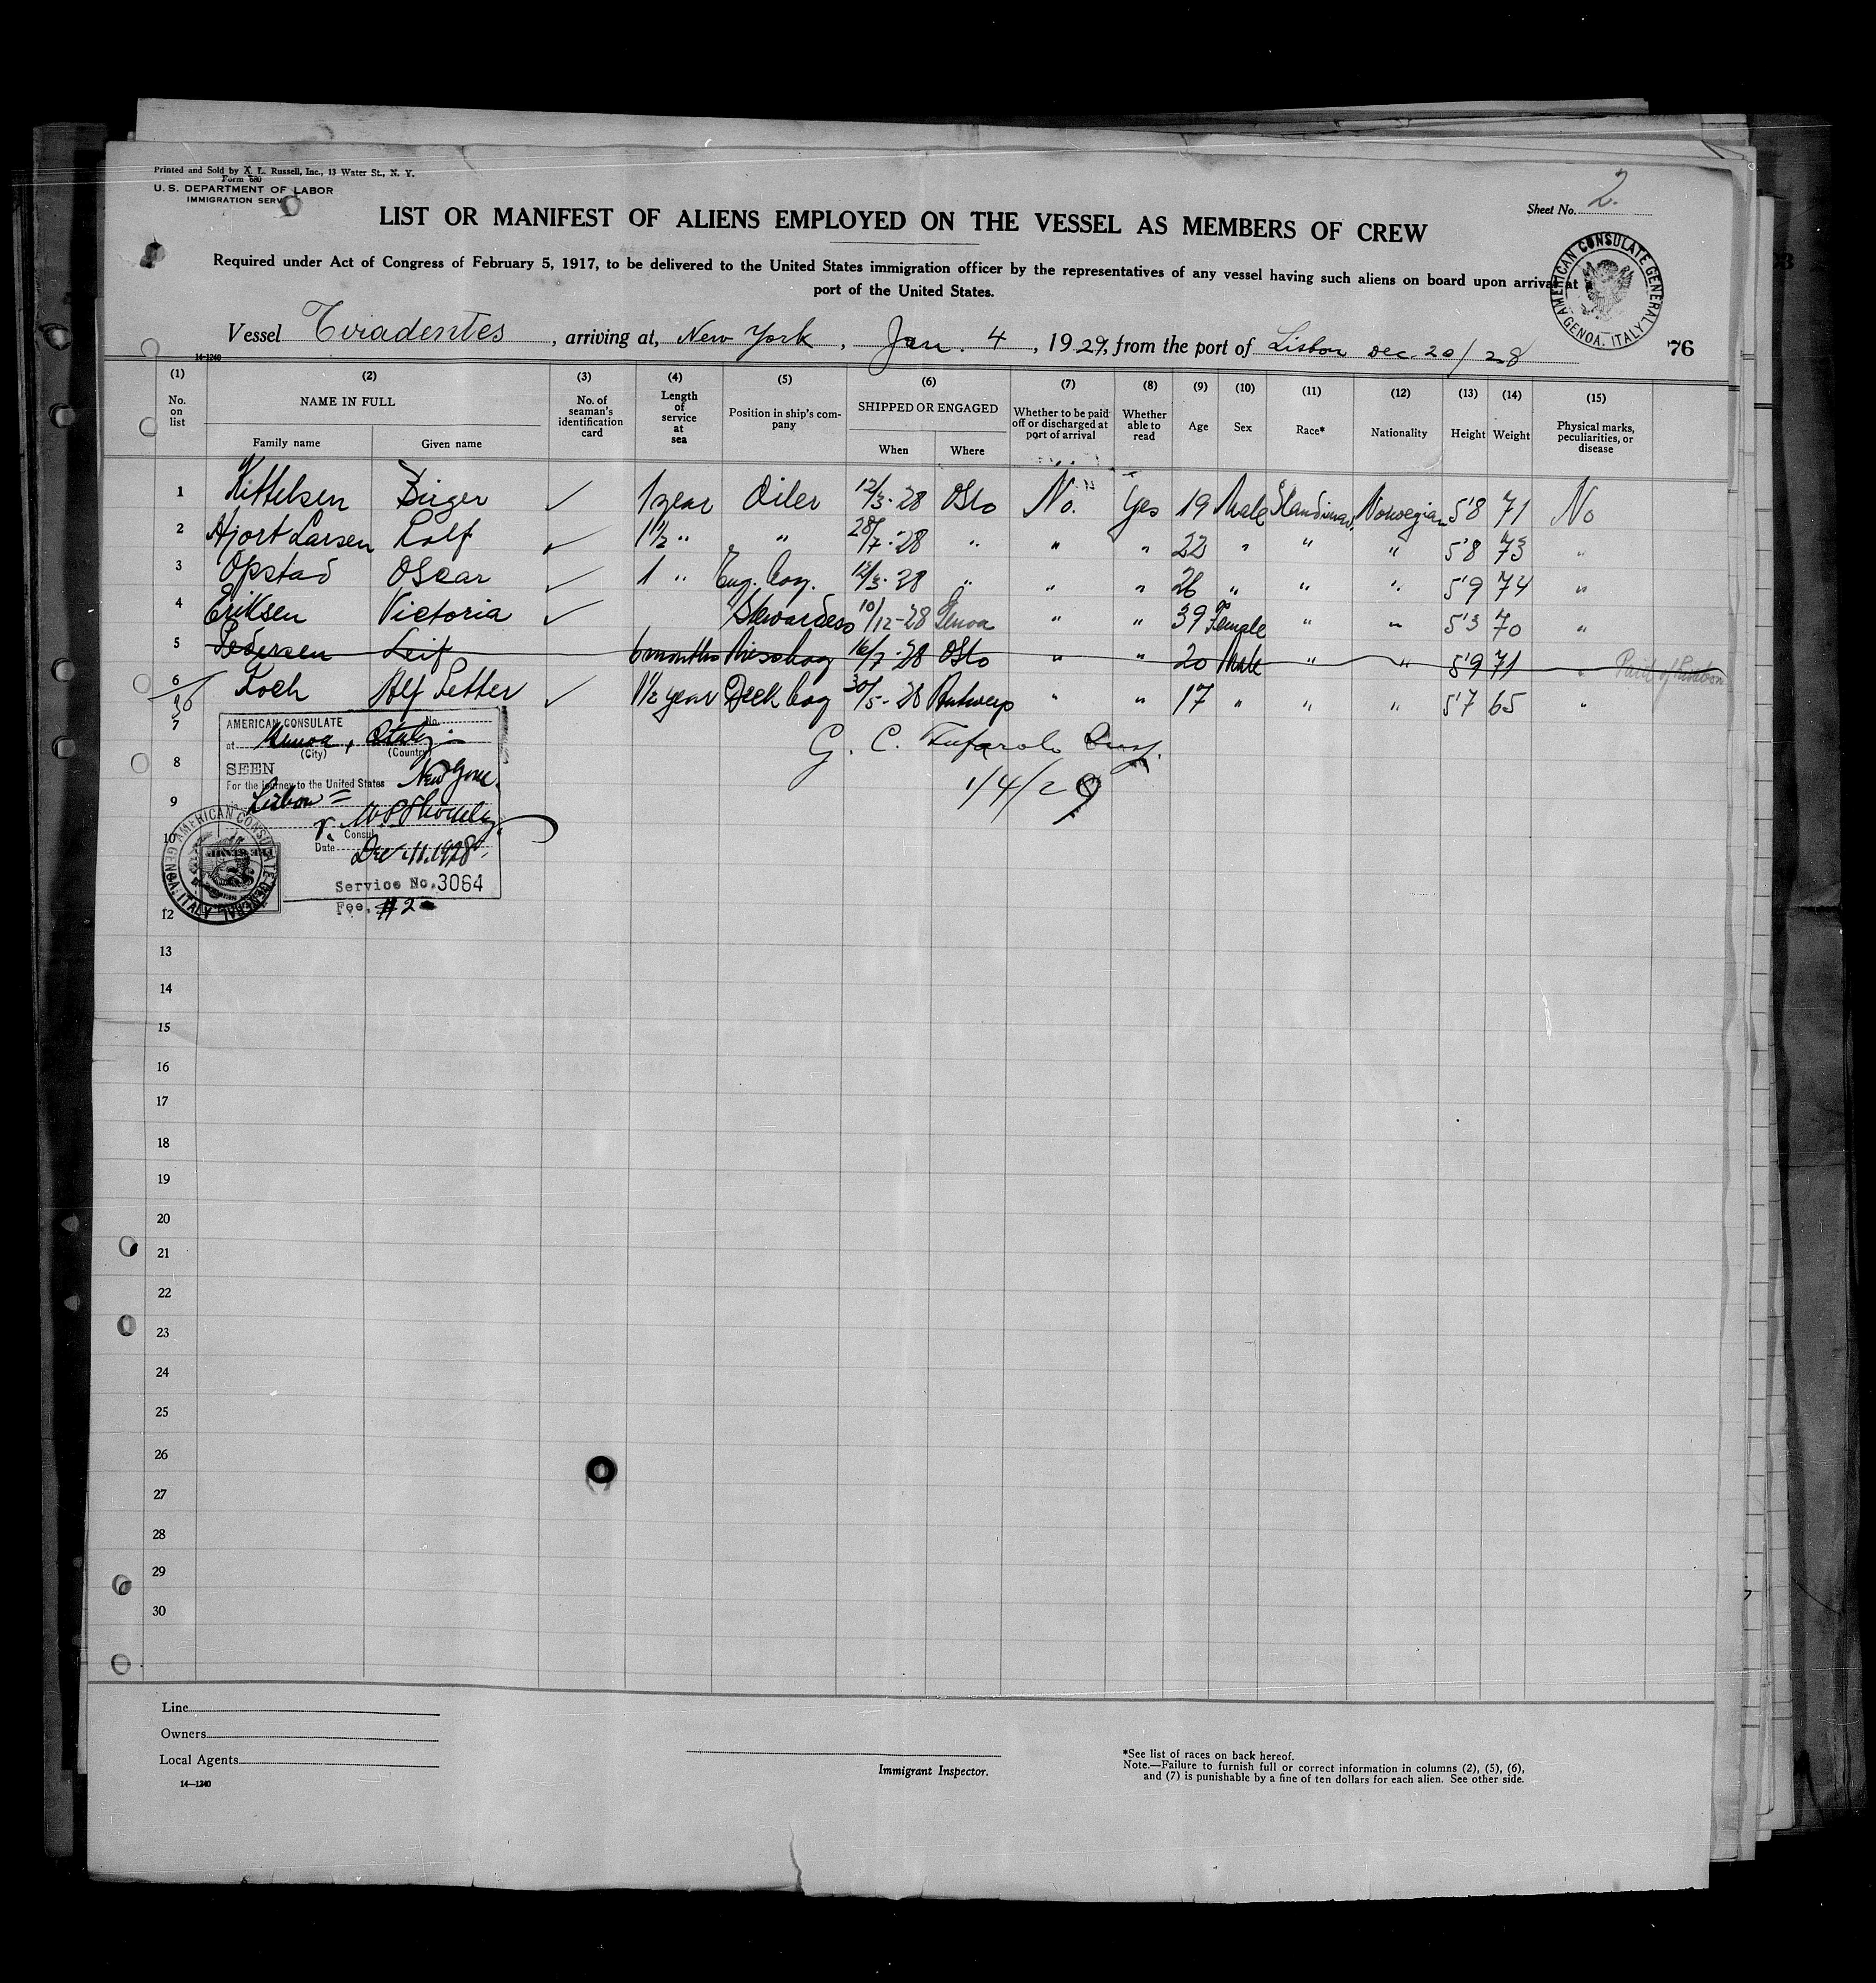 Printed and Sold by X. L. Russell, Inc., 13 Water St., N. Y.
Form 680
U. S. DEPARTMENT OF LABOR
IMMIGRATION SERV
Sheet No. 2.
LIST OR MANIFEST OF ALIENS EMPLOYED ON THE VESSEL AS MEMBERS OF CREW
Required under Act of Congress of February 5, 1917, to be delivered to the United States immigration officer by the representatives of any vessel having such aliens on board upon arrival at
port of the United States.
AMERICAN CONSULATE GENERAL GENOA, ITALY
Vessel Tiradentes, arriving at, New York, Jan. 4, 1929, from the port of Lisbon Dec. 20/28
76
14-1240
(1) (2) (3) (4) (5) (6) (7) (8) (9) (10) (11) (12) (13) (14) (15)
No. on list
NAME IN FULL
Family name Given name
No. of seaman's identification card
Length of service at sea
Position in ship's company
SHIPPED OR ENGAGED
When Where
Whether to be paid off or discharged at port of arrival
Whether able to read
Age Sex Race* Nationality Height Weight
Physical marks, peculiarities, or disease
1 Kittelsen Birger ✓ 1 year Oiler 12/3-28 Oslo No. Yes 19 Male Skandinav. Norwegian 5'8 71 No
2 Hjort Larsen Rolf ✓ 1½ " " 28/7-28 " " " 22 " " " 5'8 73 "
3 Opstad Oscar ✓ 1 " Eng. boy. 12/3-28 " " " 26 " " " 5'9 74 "
4 Eriksen Victoria ✓ Stewardess 10/12-28 Genoa " " 39 Female " " 5'3 70 "
5 Pedersen Leif 6 months Messboy 16/7-28 Oslo " " 20 Male " " 5'9 71 " Paid of Lisbon
6 Koch Alf Petter ✓ 1½ year Deck boy 30/5-28 Antwerp " " 17 " " " 5'7 65 "
7
AMERICAN CONSULATE No.
at Genoa, Italy
(City) (Country)
8
SEEN
For the journey to the United States New York
9
Lisbon
10
Consul
Date Dec. 11. 1928
Service No. 3064
Fee, #2
AMERICAN CONSULATE GENERAL GENOA, ITALY
G. C. Insp.
1/4/29
12
13
14
15
16
17
18
19
20
21
22
23
24
25
26
27
28
29
30
Line
Owners
Local Agents
14—1240
Immigrant Inspector.
*See list of races on back hereof.
Note.—Failure to furnish full or correct information in columns (2), (5), (6),
and (7) is punishable by a fine of ten dollars for each alien. See other side.